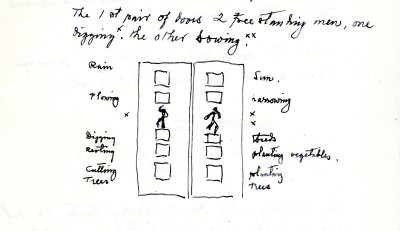 The 1st pair of doors 2 free standing men, one
digging x. the other sowing. xx
Rain
Sun.
Plowing
harrowing
x
x
x
Digging
Seeds
planting vegetables.
Cutting
Trees
planting
Trees